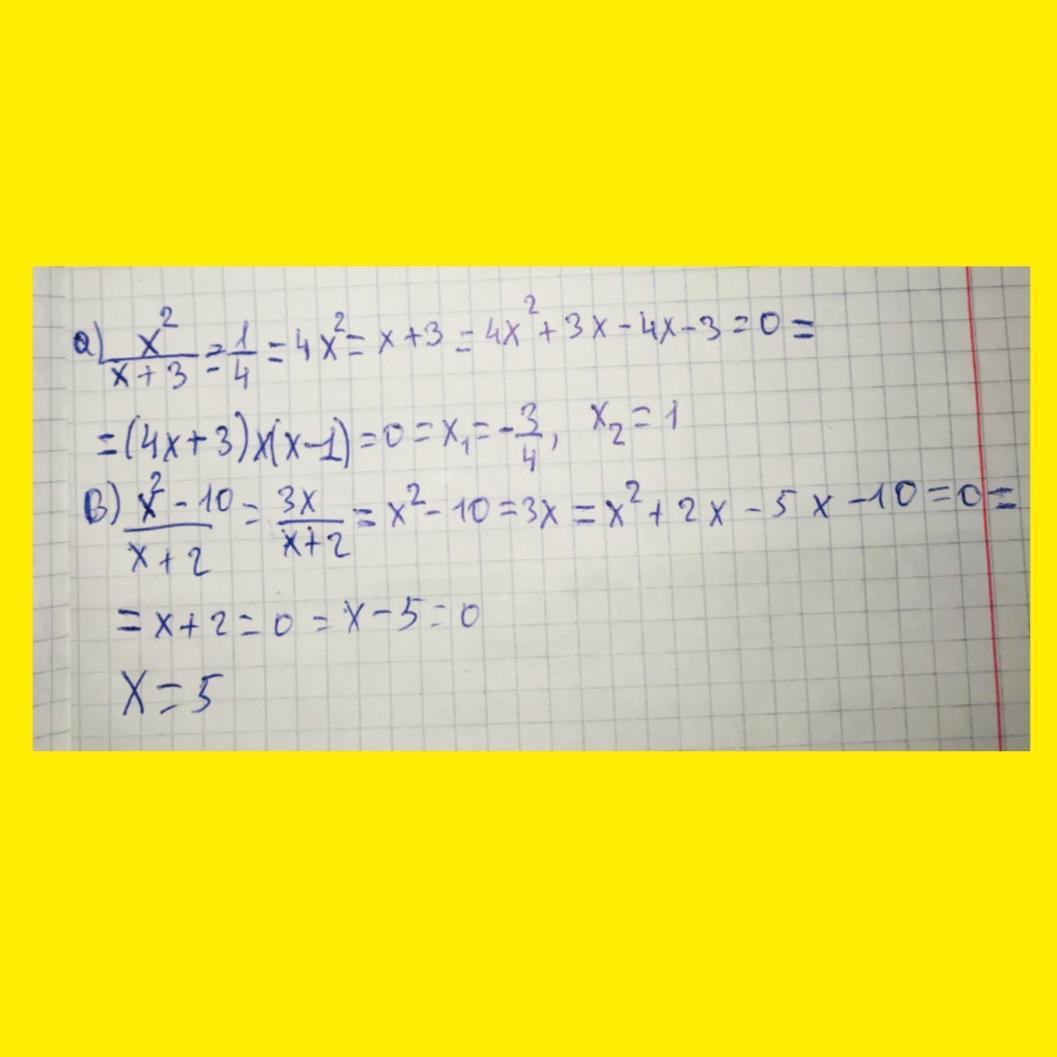 a) x²/(x+3) = 1/4 = 4x² = x+3 = 4x²+3x-4x-3=0=
=(4x+3)x(x-1)=0=x₁=-3/4, x₂=1
в) (x²-10)/(x+2) = 3x/(x+2) = x²-10=3x = x²+2x-5x-10=0=
=x+2=0=x-5=0
x=5